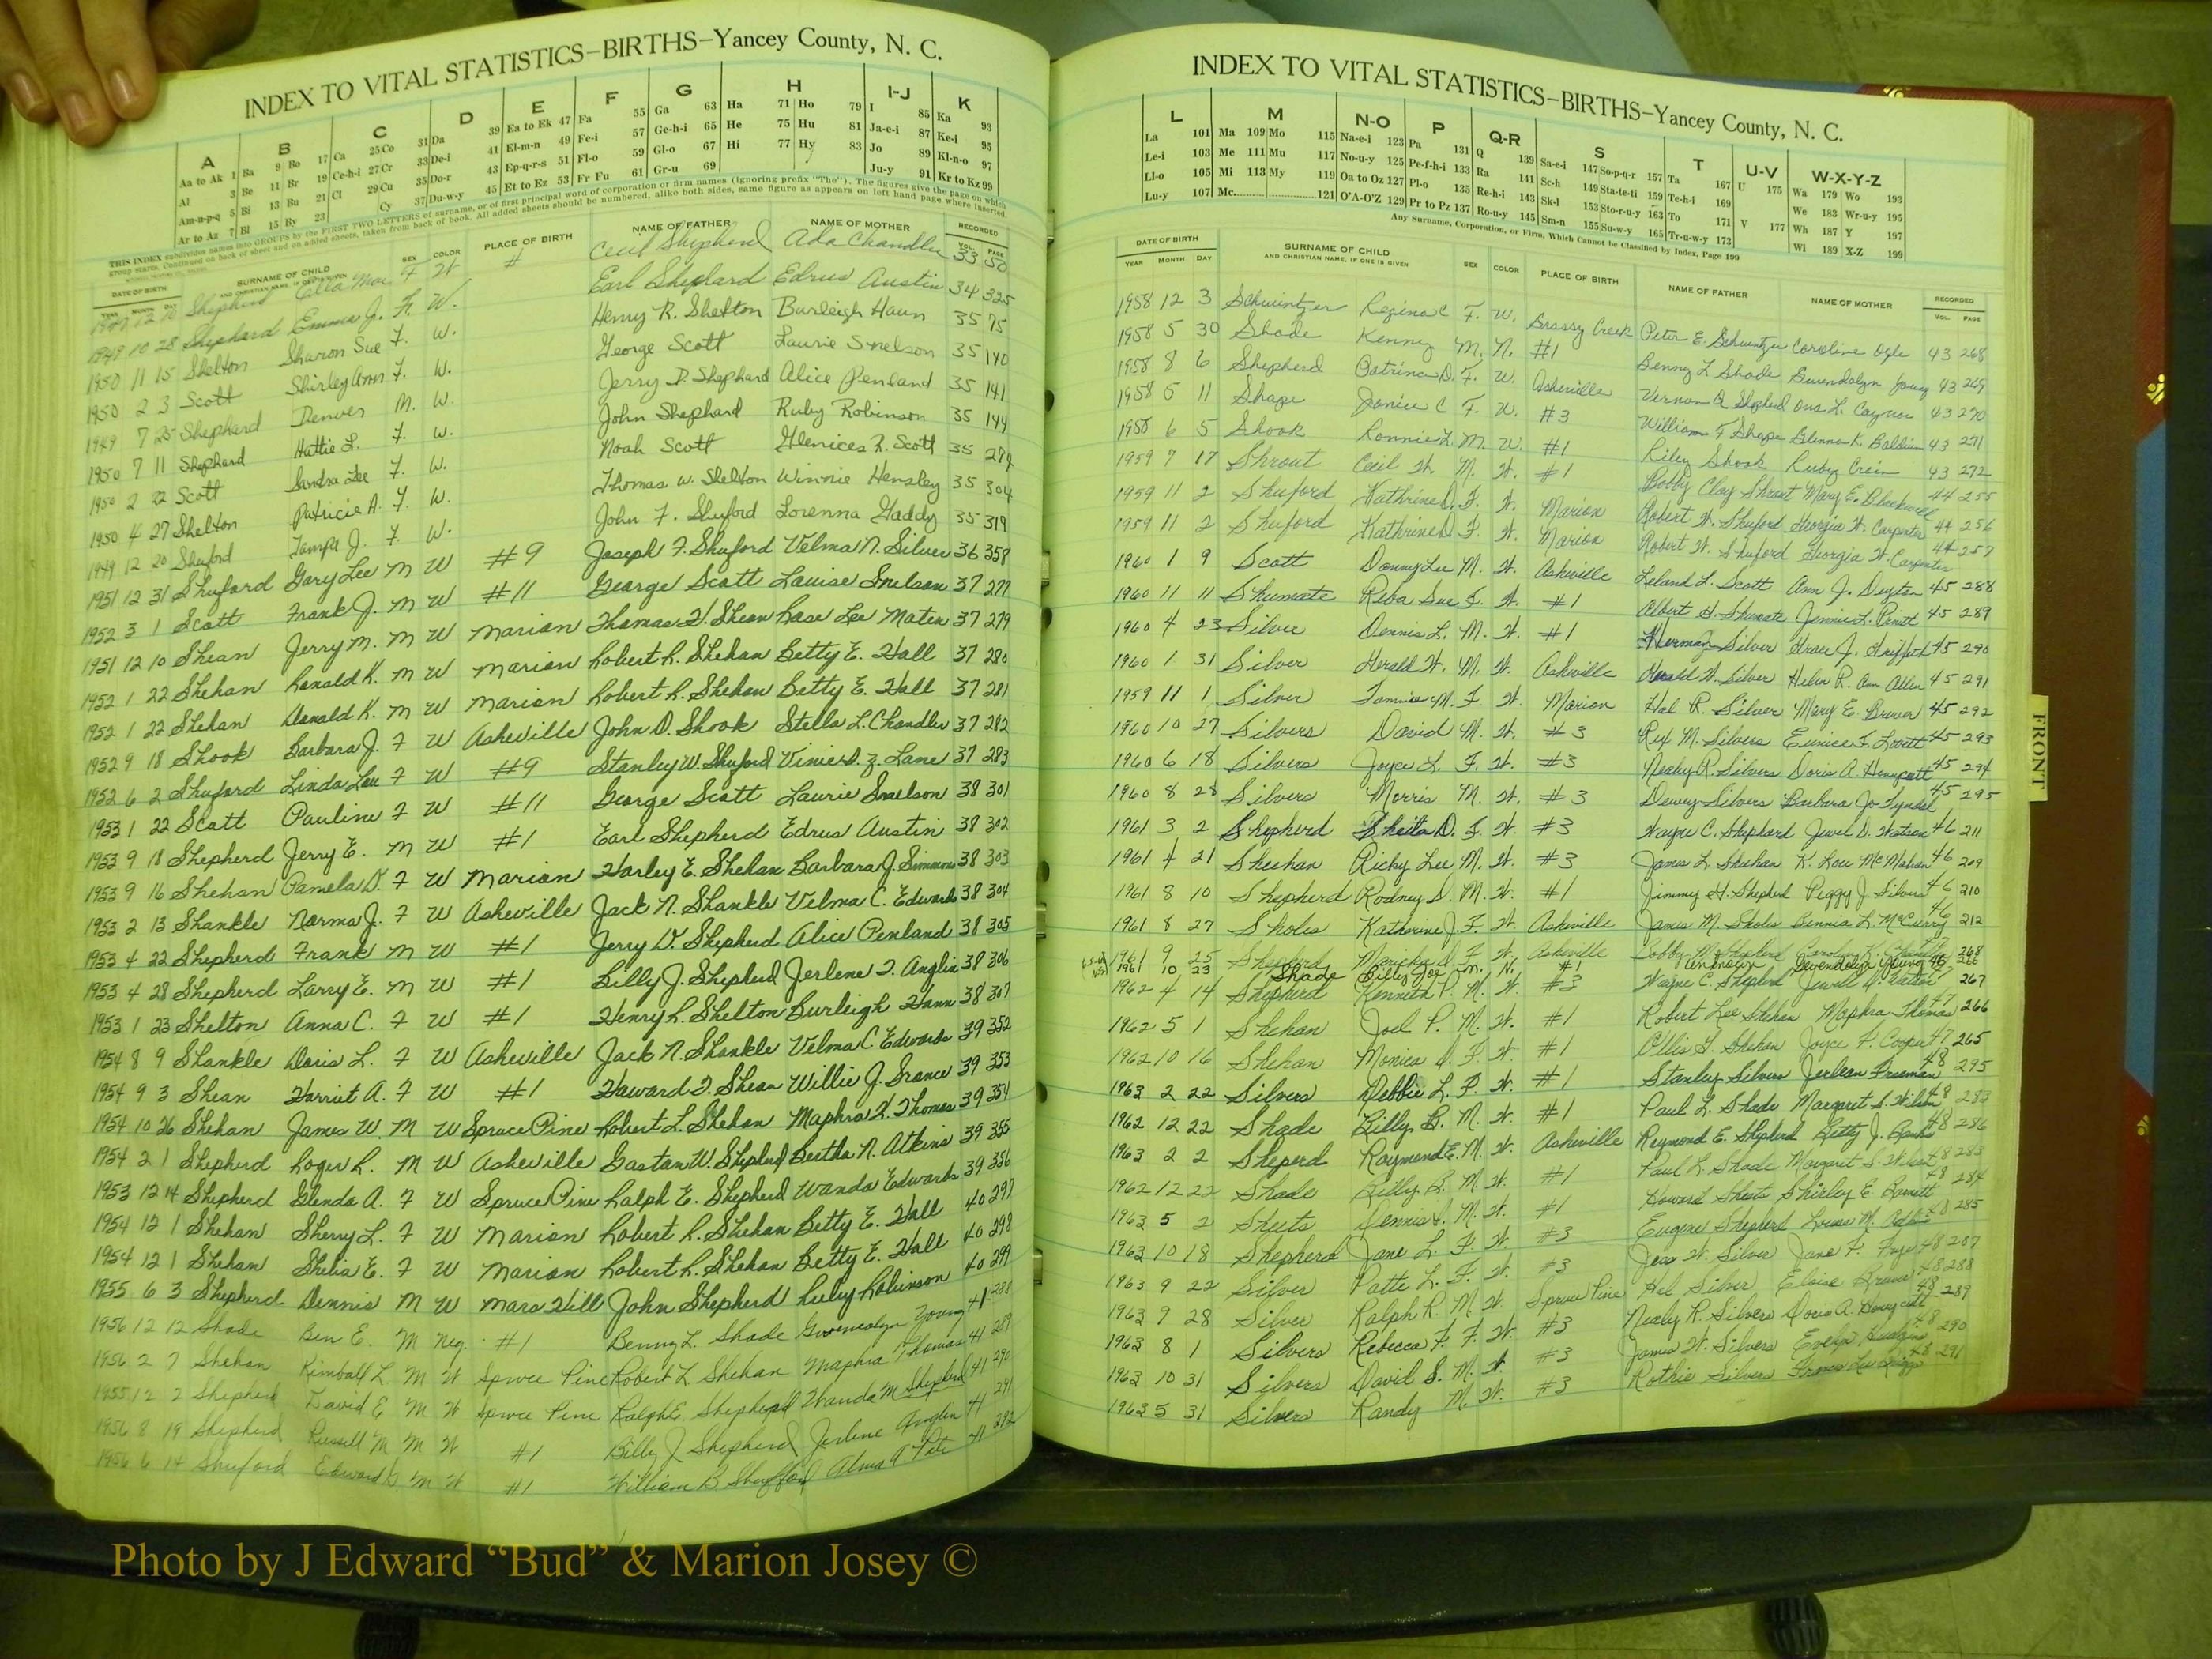 INDEX TO VITAL STATISTICS–BIRTHS–Yancey County, N. C.
A B C D E F G H I-J K
Aa to Ak 1 Ba 9 Bo 17 Ca 25 Co 31 Da 39 Ea to Ek 47 Fa 55 Ga 63 Ha 71 Ho 79 I 85 Ka 93
Al 3 Be 11 Br 19 Ce-h-i 27 Cr 33 De-i 41 El-m-n 49 Fe-i 57 Ge-h-i 65 He 75 Hu 81 Ja-e-i 87 Ke-i 95
Am-n-p-q 5 Bi 13 Bu 21 Cl 29 Cu 35 Do-r 43 Ep-q-r-s 51 Fl-o 59 Gl-o 67 Hi 77 Hy 83 Jo 89 Kl-n-o 97
Ar to Az 7 Bl 15 By 23 Cy 37 Du-w-y 45 Et to Ez 53 Fr Fu 61 Gr-u 69 Ju-y 91 Kr to Kz 99
THIS INDEX subdivides names into GROUPS by the FIRST TWO LETTERS of surname, or of first principal word of corporation or firm names (ignoring prefix "The"). The figures give the page on which
group starts. Continued on back of sheet and on added sheets, taken from back of book. All added sheets should be numbered, alike both sides, same figure as appears on left hand page where inserted.
DATE OF BIRTH SURNAME OF CHILD AND CHRISTIAN NAME, IF ONE IS GIVEN SEX COLOR PLACE OF BIRTH NAME OF FATHER NAME OF MOTHER RECORDED
YEAR MONTH DAY VOL. PAGE
Shepherd Mae F W # Cecil Shepherd Ada Chandler 33 50
1949 10 28 Shephard Emma J. F. W. Earl Shephard Edrus Austin 34 325
1950 11 15 Shelton Sharon Sue F. W. Henry R. Shelton Burleigh Haun 35 75
1950 2 3 Scott Shirley Ann F. W. George Scott Laurie Snelson 35 140
1949 7 25 Shephard Denver M. W. Jerry D. Shephard Alice Penland 35 141
1950 7 11 Shephard Hattie L. F. W. John Shephard Ruby Robinson 35 144
1950 2 22 Scott Sandra Lee F. W. Noah Scott Glenices R. Scott 35 274
1950 4 27 Shelton Patricia A. F. W. Thomas W. Shelton Winnie Hensley 35 304
1949 12 20 Shuford J. F. W. John F. Shuford Lorenna Gaddy 35 319
1951 12 31 Shuford Gary Lee M W #9 Joseph F. Shuford Velma N. Silver 36 358
1952 3 1 Scott Frank J. M W #11 George Scott Louise Snelson 37 277
1951 12 10 Shean Jerry M. M W Marion Thomas H. Shean Rose Lee 37 279
1952 1 22 Shehan Ronald K. M W Marion Robert R. Shehan Betty E. Hall 37 280
1952 1 22 Shehan Donald K. M W Marion Robert R. Shehan Betty E. Hall 37 281
1952 9 18 Shook Barbara J. F W Asheville John D. Shook Stella L. Chandler 37 282
1952 6 2 Shuford Linda Lou F W #9 Stanley W. Shuford Z. Lane 37 283
1953 1 22 Scott Pauline F W #11 George Scott Laurie Snelson 38 301
1953 9 18 Shepherd Jerry E. M W #1 Earl Shepherd Edrus Austin 38 302
1953 9 16 Shehan Pamela D. F W Marion Harley E. Shehan Barbara J. Simmons 38 303
1953 2 13 Shankle Norma J. F W Asheville Jack N. Shankle Velma C. Edwards 38 304
1953 4 22 Shepherd Frank M W #1 Jerry D. Shepherd Alice Penland 38 305
1953 4 28 Shepherd Larry E. M W #1 Billy J. Shepherd Jerlene T. Anglin 38 306
1953 1 23 Shelton Anna C. F W #1 Henry R. Shelton Burleigh Hann 38 307
1954 8 9 Shankle Doris L. F W Asheville Jack N. Shankle Velma C. Edwards 39 352
1954 9 3 Shean Harriet A. F W #1 Howard T. Shean Willie J. 39 353
1954 10 26 Shehan James W. M W Spruce Pine Robert L. Shehan Maphra H. Thomas 39 354
1954 2 1 Shepherd Roger R. M W Asheville Gaston W. Shepherd Bertha N. Atkins 39 355
1953 12 14 Shepherd Glenda A. F W Spruce Pine Ralph E. Shepherd Wanda Edwards 39 356
1954 12 1 Shehan Sherry L. F W Marion Robert R. Shehan Betty E. Hall 40 297
1954 12 1 Shehan Shelia E. F W Marion Robert R. Shehan Betty E. Hall 40 298
1955 6 3 Shepherd Dennis M W Mars Hill John Shepherd Ruby Robinson 40 299
1956 12 12 Shade Ben E. M Neg. #1 Benny L. Shade Gwendolyn Young 41 288
1956 2 7 Shehan Kimball L. M W Spruce Pine Robert L Shehan Maphra Thomas 41 289
1955 12 2 Shepherd David E M W Spruce Pine Ralph E. Shepherd Wanda M Shepherd 41 290
1956 8 19 Shepherd Russell M M W #1 Billy J Shepherd Jerlene Anglin 41 291
1956 6 14 Shuford Edward M W #1 William B Shufford Alma 41 292
INDEX TO VITAL STATISTICS–BIRTHS–Yancey County, N. C.
L M N-O P Q-R S T U-V W-X-Y-Z
La 101 Ma 109 Mo 115 Na-e-i 123 Pa 131 Q 139 Sa-e-i 147 So-p-q-r 157 Ta 167 U 175 Wa 179 Wo 193
Le-i 103 Me 111 Mu 117 No-u-y 125 Pe-f-h-i 133 Ra 141 Sc-h 149 Sta-te-ti 159 Te-h-i 169 We 183 Wr-u-y 195
Ll-o 105 Mi 113 My 119 Oa to Oz 127 Pl-o 135 Re-h-i 143 Sk-l 153 Sto-r-u-y 163 To 171 V 177 Wh 187 Y 197
Lu-y 107 Mc 121 O'A-O'Z 129 Pr to Pz 137 Ro-u-y 145 Sm-n 155 Su-w-y 165 Tr-u-w-y 173 Wi 189 X-Z 199
Any Surname, Corporation, or Firm, Which Cannot be Classified by Index, Page 199
DATE OF BIRTH SURNAME OF CHILD AND CHRISTIAN NAME, IF ONE IS GIVEN SEX COLOR PLACE OF BIRTH NAME OF FATHER NAME OF MOTHER RECORDED
YEAR MONTH DAY VOL. PAGE
1958 12 3 Schwintzer Regina C F. W. Brassy Creek Peter E. Schwintzer Caroline Ogle 43 268
1958 5 30 Shade Kenny M. N. #1 Benny L Shade Gwendolyn Young 43 269
1958 8 6 Shepherd D. F. W. Asheville Vernon Shepherd L. 43 270
1958 5 11 Shape Janice C F. W. #3 William F Shape Glenna K. 43 271
1958 6 5 Shook Ronnie L. M. W. #1 Riley Shook Ruby 43 272
1959 7 17 Shrout Cecil W. M. W. #1 Bobby Clay Shrout Mary E. Blackwell 44 255
1959 11 2 Shuford Kathrine D. F. W. Marion Robert W. Shuford Georgia W. Carpenter 44 256
1959 11 2 Shuford Kathrine D F. W. Marion Robert W. Shuford Georgia W. Carpenter 44 257
1960 1 9 Scott Donny Lee M. W. Asheville Leland L. Scott Ann J. Deyton 45 288
1960 11 11 Shumate Reba Sue F. W. #1 Albert H. Shumate Jennie L. 45 289
1960 4 23 Silver Dennis L. M. W. #1 Herman Silver Grace J. 45 290
1960 1 31 Silver Herald W. M. W. Asheville Herald W. Silver Helen R. Ann Allen 45 291
1959 11 1 Silver M. F. W. Marion Hal R. Silver Mary E. 45 292
1960 10 27 Silvers David M. W. #3 Rex M. Silvers Eunice F. 45 293
1960 6 18 Silvers Joyce L. F. W. #3 Nealy R. Silvers Doris A. Honeycutt 45 294
1960 8 28 Silvers Morris M. W. #3 Dewey Silvers Barbara Jo 45 295
1961 3 2 Shepherd Sheila D. F. W. #3 Wayne C. Shephard Jewel D. Watson 46 211
1961 4 21 Sheehan Ricky Lee M. W. #3 James L Shehan K. Lou McMahan 46 209
1961 8 10 Shepherd Rodney D. M. W. #1 Jimmy H. Shepherd Peggy J. Silvers 46 210
1961 8 27 Sholes Kathrine J. F. W. Asheville James M. Sholes Bennia L. McCurry 46 212
1961 9 25 Shepherd F. W. Asheville Bobby Shepherd 268
1961 10 23 Shade Billy Joe M. N. #1 Unknown Gwendolyn Young 46
1962 4 14 Shepherd Kenneth P. M. W. #3 Wayne C. Shepherd Jewell D. Watson 47 267
1962 5 1 Shehan Joel P. M. W. #1 Robert Lee Shehan Maphra Thomas 47 266
1962 10 16 Shehan Monica F. W. #1 Ollis G. Shehan Joyce F. Cooper 47 265
1963 2 22 Silvers Debbie L. F. W. #1 Stanley Silvers Jerlean Freeman 48 295
1962 12 22 Shade Billy B. M. W. #1 Paul L. Shade Margaret S. Wilson 48 283
1963 2 2 Sheperd Raymond E. M. W. Asheville Raymond E. Shepherd Betty J. Banks 48 286
1962 12 22 Shade Billy B. M. W. #1 Paul L. Shade Margaret S. Wilson 48 283
1963 5 2 Sheets Dennis M. W. #1 Howard Sheets Shirley E. 48 284
1963 10 18 Shepherd Jane L. F. W. #3 Eugene Shepherd Louise M. 48 285
1963 9 22 Silver Patte L. F. W. #3 Jess W. Silver Jane F. 48 287
1963 9 28 Silver Ralph R. M. W. Spruce Pine Hal Silver Eloise 48 288
1963 8 1 Silvers Rebecca F. F. W. #3 Nealy R. Silvers Doris A. Honeycutt 48 289
1963 10 31 Silvers David S. M. W. #3 James W. Silvers 48 290
1963 5 31 Silvers Randy M. W. #3 Silvers 48 291
FRONT
Photo by J Edward “Bud” & Marion Josey ©